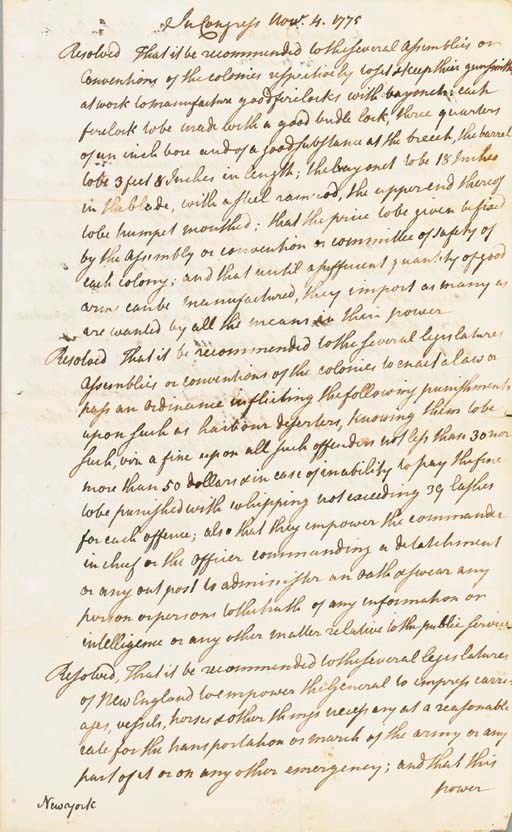 In Congress Novr. 4. 1775
Resolved That it be recommended to the several Assemblies or
Conventions of the colonies respectively to set & keep their gunsmiths
at work to manufacture good firelocks with bayonets; each
firelock to be made with a good bridle lock, three quarters
of an inch bore and of a good substance at the breech, the barrel
to be 3 feet 8 Inches in length; the bayonet to be 18 Inches
in the blade, with a steel ramrod, the upper end thereof
to be trumpet mouthed; that the price to be given be fixed
by the Assembly or convention or committee of safety of
each colony; and that until a sufficient quantity of good
arms can be manufactured, they import as many as
are wanted by all the means in their power
Resolved That it be recommended to the several legislatures
Assemblies or conventions of the colonies to enact a law or
pass an ordinance inflicting the following punishments
upon such as harbour deserters, knowing them to be
such, viz a fine upon all such offenders not less than 30 nor
more than 50 dollars & in case of inability to pay the fine
to be punished with whipping not exceeding 39 lashes
for each offence; also that they empower the commander
in chief or the officer commanding a detatchment
or any out post to administer an oath & swear any
person or persons to the truth of any information or
intelligence or any other matter relative to the public service
Resolved, That it be recommended to the several legislatures
of New England to empower the General to impress carri-
ages, vessels, horses & other things necessary at a reasonable
rate for the transportation or march of the army or any
part of it or on any other emergency; and that this
power
New york